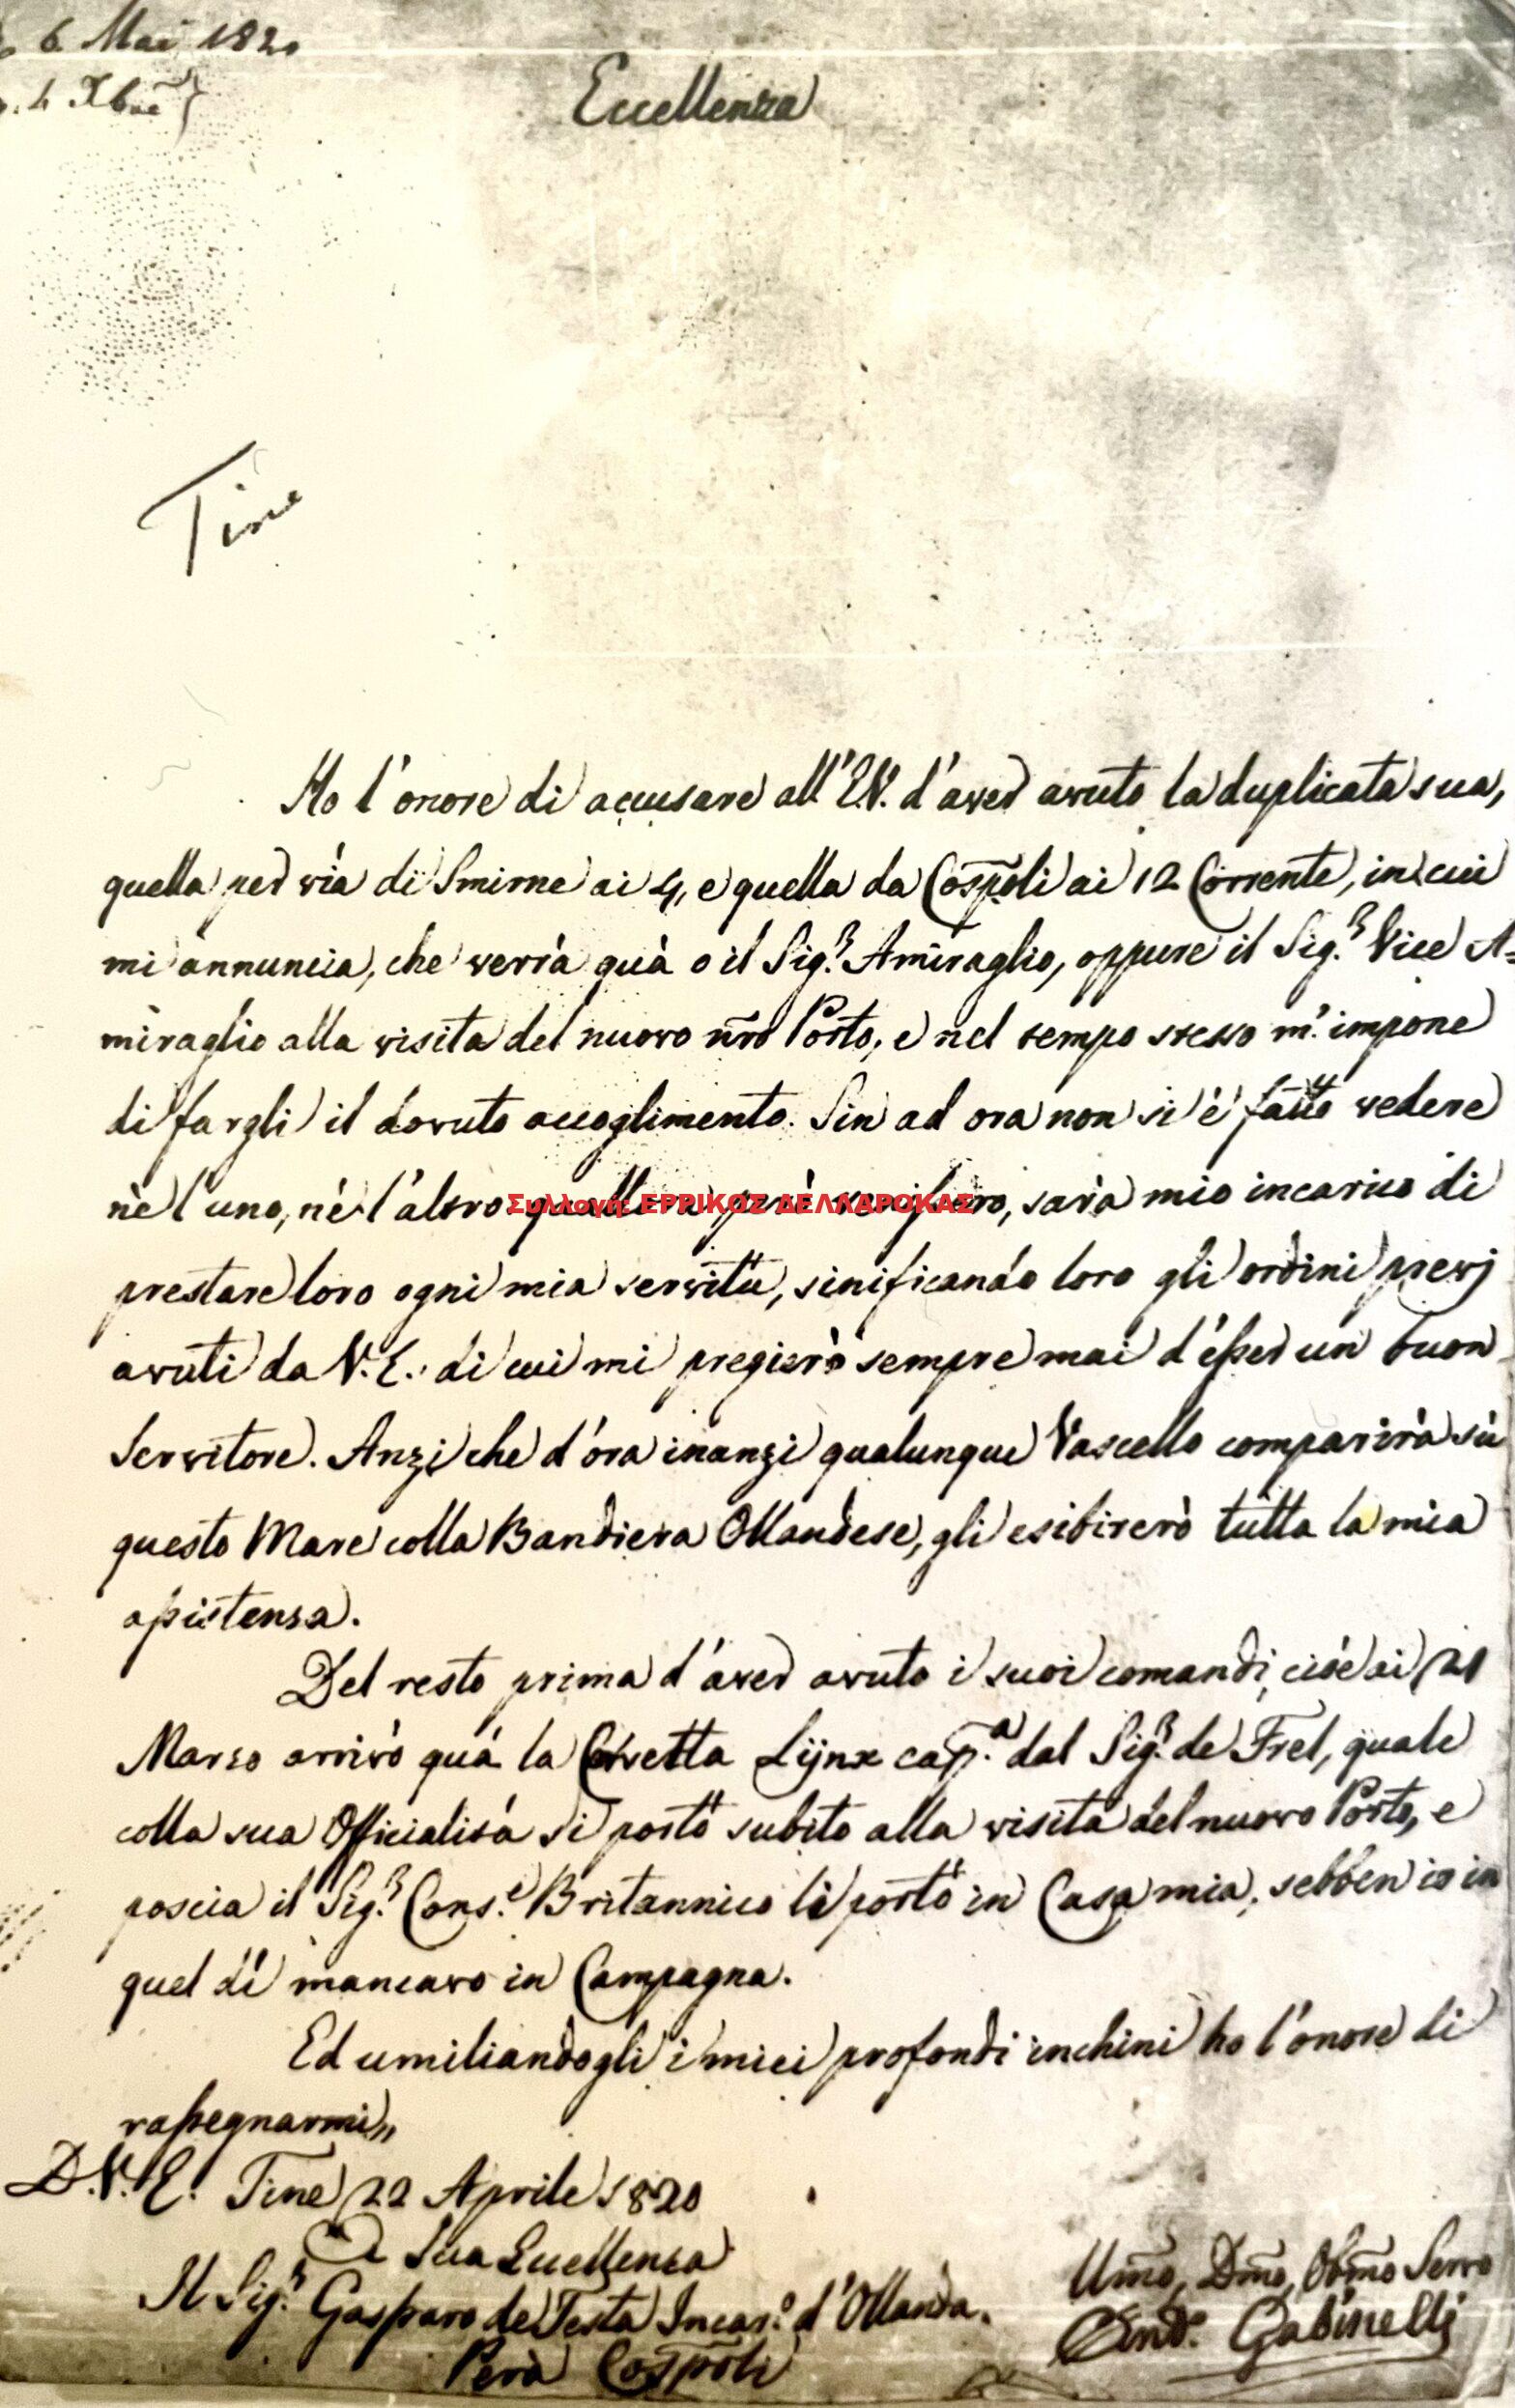 6 Mai 1820
Xbre
Eccellenza
Tine
Ho l'onore di accusare all'E.V. d'aver avuto la duplicata sua,
quella per via di Smirne ai 4, e quella da Cospoli ai 12 Corrente, in cui
mi annuncia, che verrà quà o il Sig.r Amiraglio, oppure il Sig.r Vice A=
miraglio alla visita del nuovo nro Porto, e nel tempo stesso m'impone
di fargli il dovuto accoglimento. Sin ad ora non si è fatto vedere
nè l'uno, nè l'altro
Συλλογή ΕΡΡΙΚΟΣ ΔΕΛΛΑΡΟΚΑΣ
, sarà mio incarico di
prestare loro ogni mia servitù, sinificando loro gli ordini prevj
avuti da V.E. di cui mi pregierò sempre mai d'esser un buon
Servitore. Anzi che d'ora inanzi qualunque Vascello comparirà sù
questo Mare colla Bandiera Ollandese, gli esibirerò tutta la mia
assistensa.
Del resto prima d'aver avuto i suoi comandi, cioè ai 21
Marso arrivò quà la Corvetta Lijnx cap.a dal Sig.r de Frel, quale
colla sua Officialità si portò subito alla visita del nuovo Porto, e
poscia il Sig.r Cons.e Britannico li portò in Casa mia, sebben io in
quel dì mancavo in Campagna.
Ed umiliandogli i miei profondi inchini ho l'onore di
rassegnarmi,,
D.V.E. Tine 22 Aprile 1820
A Sua Eccellensa
Il Sig.r Gasparo de Testa Incar.o d'Ollanda.
Pera Cospoli
Umo, Dmo, Obmo Servo
And.o Gabinelli